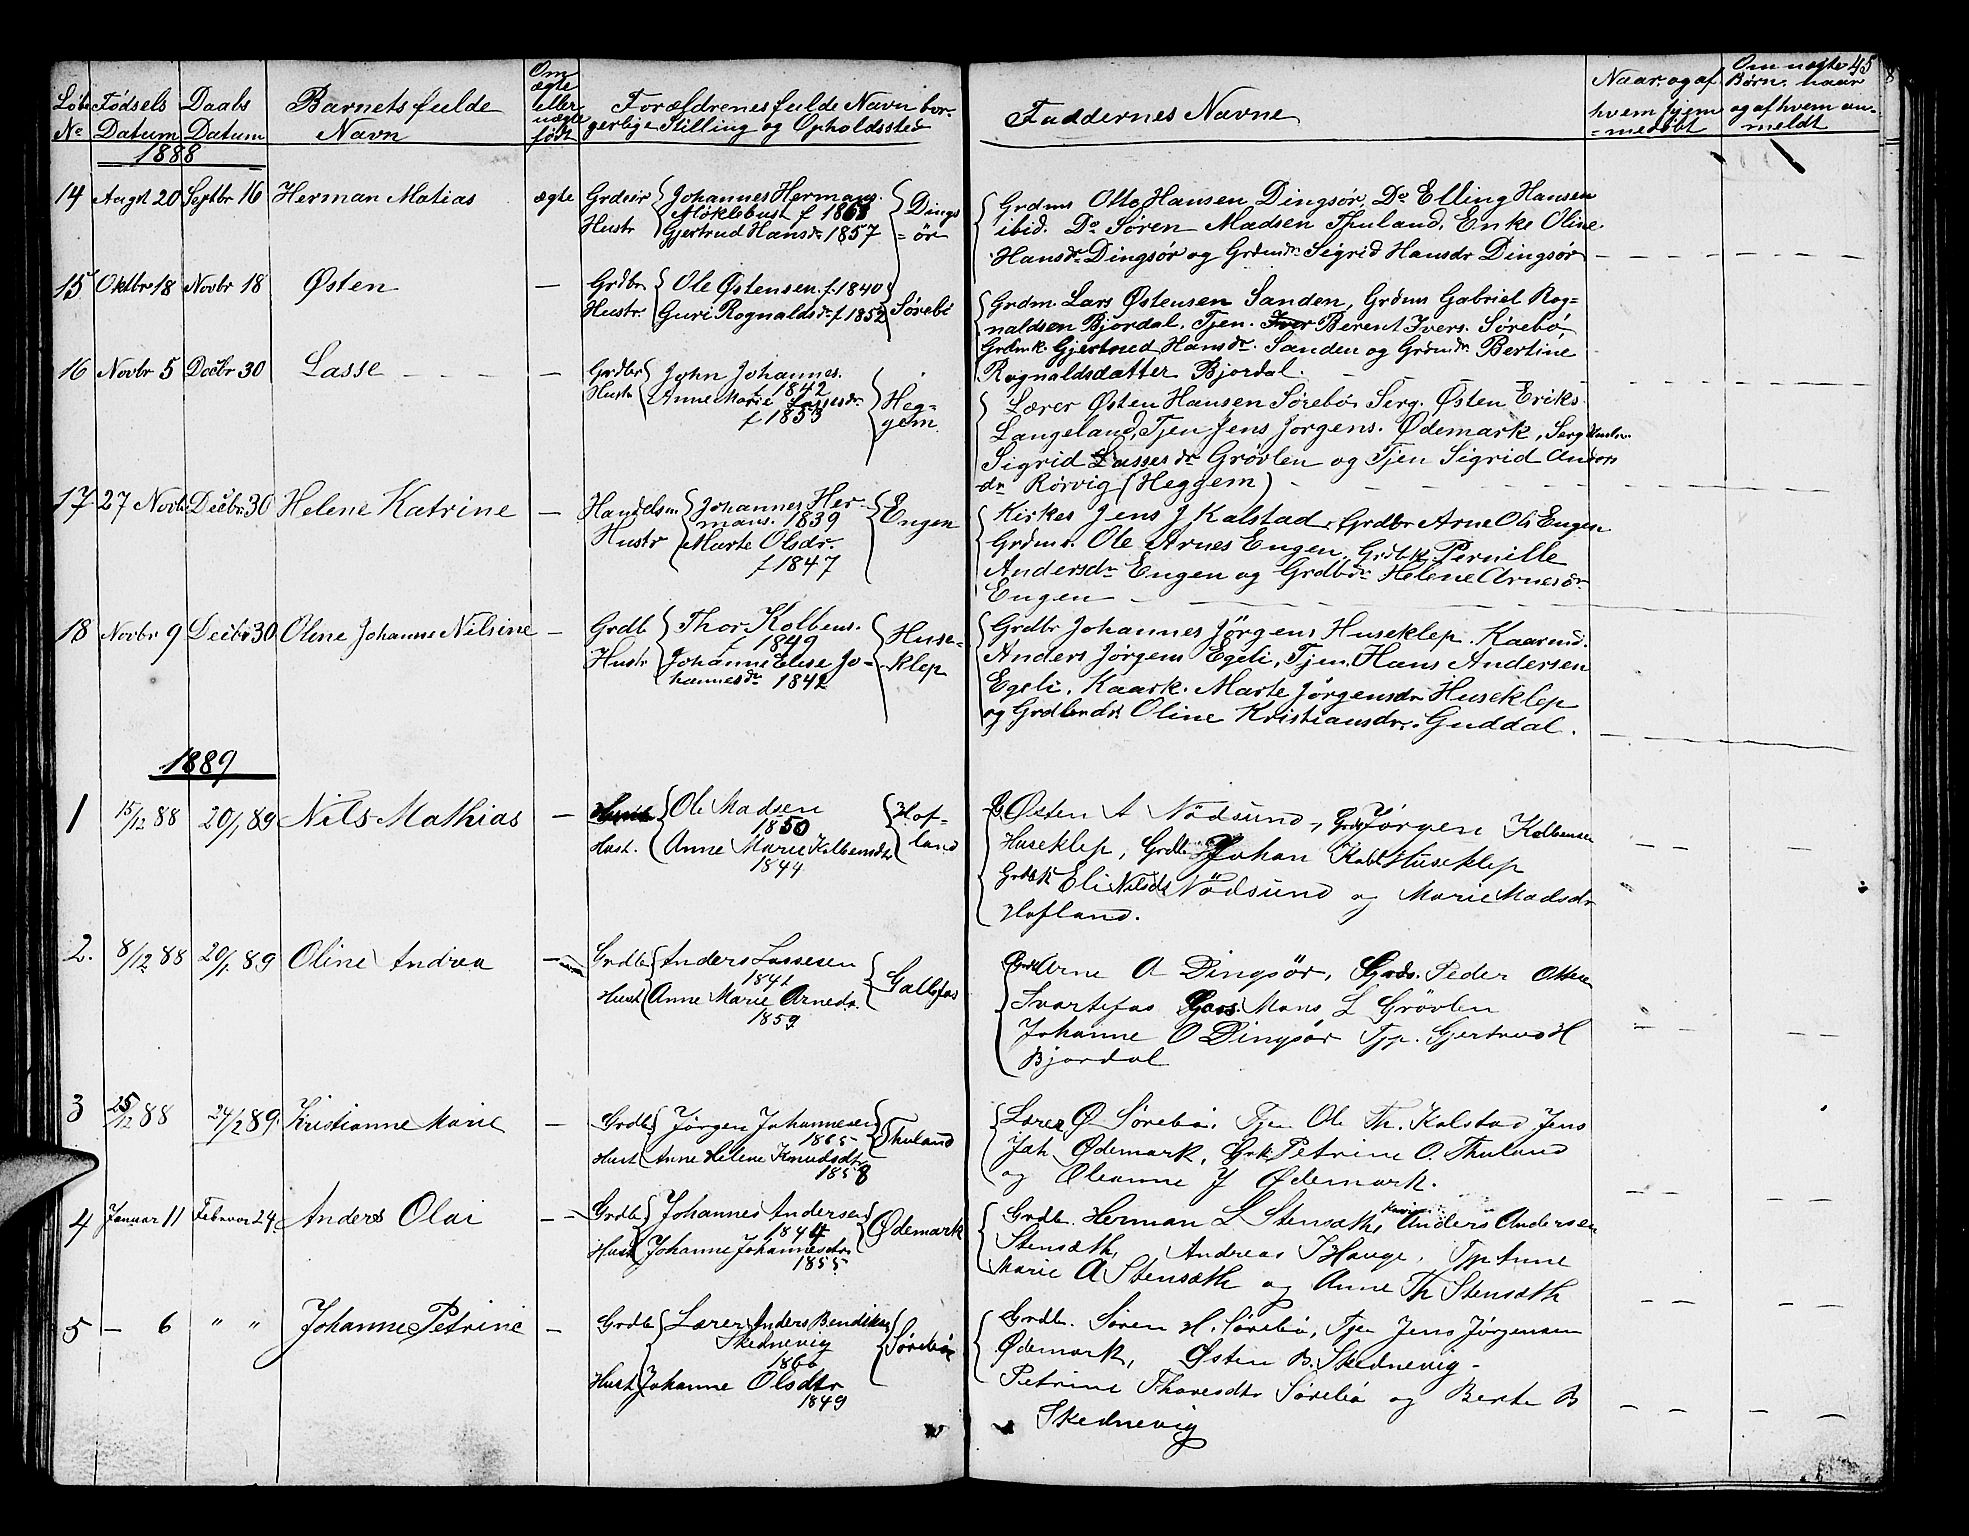 45
Løbe No
Fødsels Datum
Daabs Datum
Barnets fulde Navn
Om ægte eller uægte født
Forældrenes fulde Navn borgerlige Stilling og Opholdssted
Faddernes Navne
Naar og af hvem hjemmedøbt
Om uægte Børn. naar og af hvem anmeldt
1888
14 Augst 20 Septbr 16 Herman Matias ægte Grdeier Johannes Hermans.
Møklebust f 1868
Hustr Gjertrud Hansdr 1857
Dings=ör
Grdms Otto Hansen Dingsør, Do Elling Hansen
ibid. Do Søren Madsen Thuland, Enke Oline
Hansdr Dingsør og Grdmdr Sigrid Hansdr Dingsør
15 Oktbr 18 Novbr 18 Østen — Grdbr Ole Østensen f. 1840
Hustr. Guri Rognaldsdr f 1852
Sørebö
Grdm. Lars Østensen Sanden, Grdms Gabriel Rog=
naldsen Bjordal, Tjen. Berent Ivers. Sørebö
Grdmk. Gjertrud Hansdr. Sanden og Grdmdr. Bertine
Rognaldsdatter Bjordal.
16 Novbr 5 Decbr 30 Lasse — Grdbr John Johannes.
f 1842
Hustr Anne Marie Lassesdr
f 1853
Heg=
gem
Lærer Østen Hansen Sørebö Serg. Østen Eriks
Langeland, Tjen Jens Jørgens. Ødemark, Serg
Sigrid Lassesdr Grøvlen og Tjen Sigrid Anders
dr Rörvig (Heggem)
17 27 Novb Decbr 30 Helene Katrine — Handelsm Johannes Her-
mans. 1839
Hustr Marte Olsdr.
f 1847
Engen
Kirkes Jens J Kalstad, Grdbr Arne Ols Engen
Grdms. Ole Arnes Engen, Grdbk Pernille
Andersdr Engen og Grdbdr Helene Arnesdr
Engen
18 Novbr 9 Decbr 30 Oline Johanne Nilsine — Grdb Thor Kolbens.
f 1849
Hustr Johanne Elise Jo-
hannesdr 1842
Huse-
klep
Grdbr Johannes Jörgens Huseklep. Kaarmd.
Anders Jørgens Egeli, Tjen. Hans Andersen
Egeli. Kaark. Marte Jörgensdr Huseklep
og Grdbrdr. Oline Kristiansdr. Guddal.
1889
1 15/12 88 20/1 89 Nils Mathias — Ole Madsen
1850
Hust. Anne Marie Kolbensdtr
1844
Hof=
land
Østen A Nödsund, Grdb Jørgen Kolbensen
Huseklep, Grdb Johan Kolb Huseklep
Grdbk Eli Nilsdr Nödsund og Marie Madsdr
Hofland.
2. 8/12 88 20/1 89 Oline Andrea — Grdb Anders Lassesen
1841
Hust Anne Marie Arnedr.
1859
Gallefos
Arne A Dingsör, Grds. Peder Ottesen
Svartefos Mons L Grövlen
Johanne O Dingsör Tjp. Gjertrud H
Bjordal
3 25/12 88 24/2 89 Kristianne Marie — Grdb Jørgen Johannesen
1865
Hust Anne Helene Knudsdtr
1858
Thuland
Lærer Ø Sørebö. Tjen Ole Th. Kalstad. Jens
Joh Ødemark, Grk Petrine O. Thuland
og Oleanne J Ødemark.
4 Januar 11 Februar 24 Anders Olai — Grdb Johannes Andersen
1844
Hust Johanne Johannesdtr
1855
Ødemark
Grdb. Herman L Stensæth, Anders Andersen
Stensæth, Andreas T Hauge, Tjp Anne
Marie A Stensæth og Anne Th Stensæth
5 — 6 " " Johanne Petrine — Grdb Lærer Anders Bendiksen
Skednevig
1860
Hust Johanne Olsdtr
1849
Sørebö
Grdb. Sören H. Sørebö, Tjen Jens Jørgensen
Ødemark, Østen B. Skednevig -
Petrine Thoresdtr Sørebö og Berte B
Skednevig